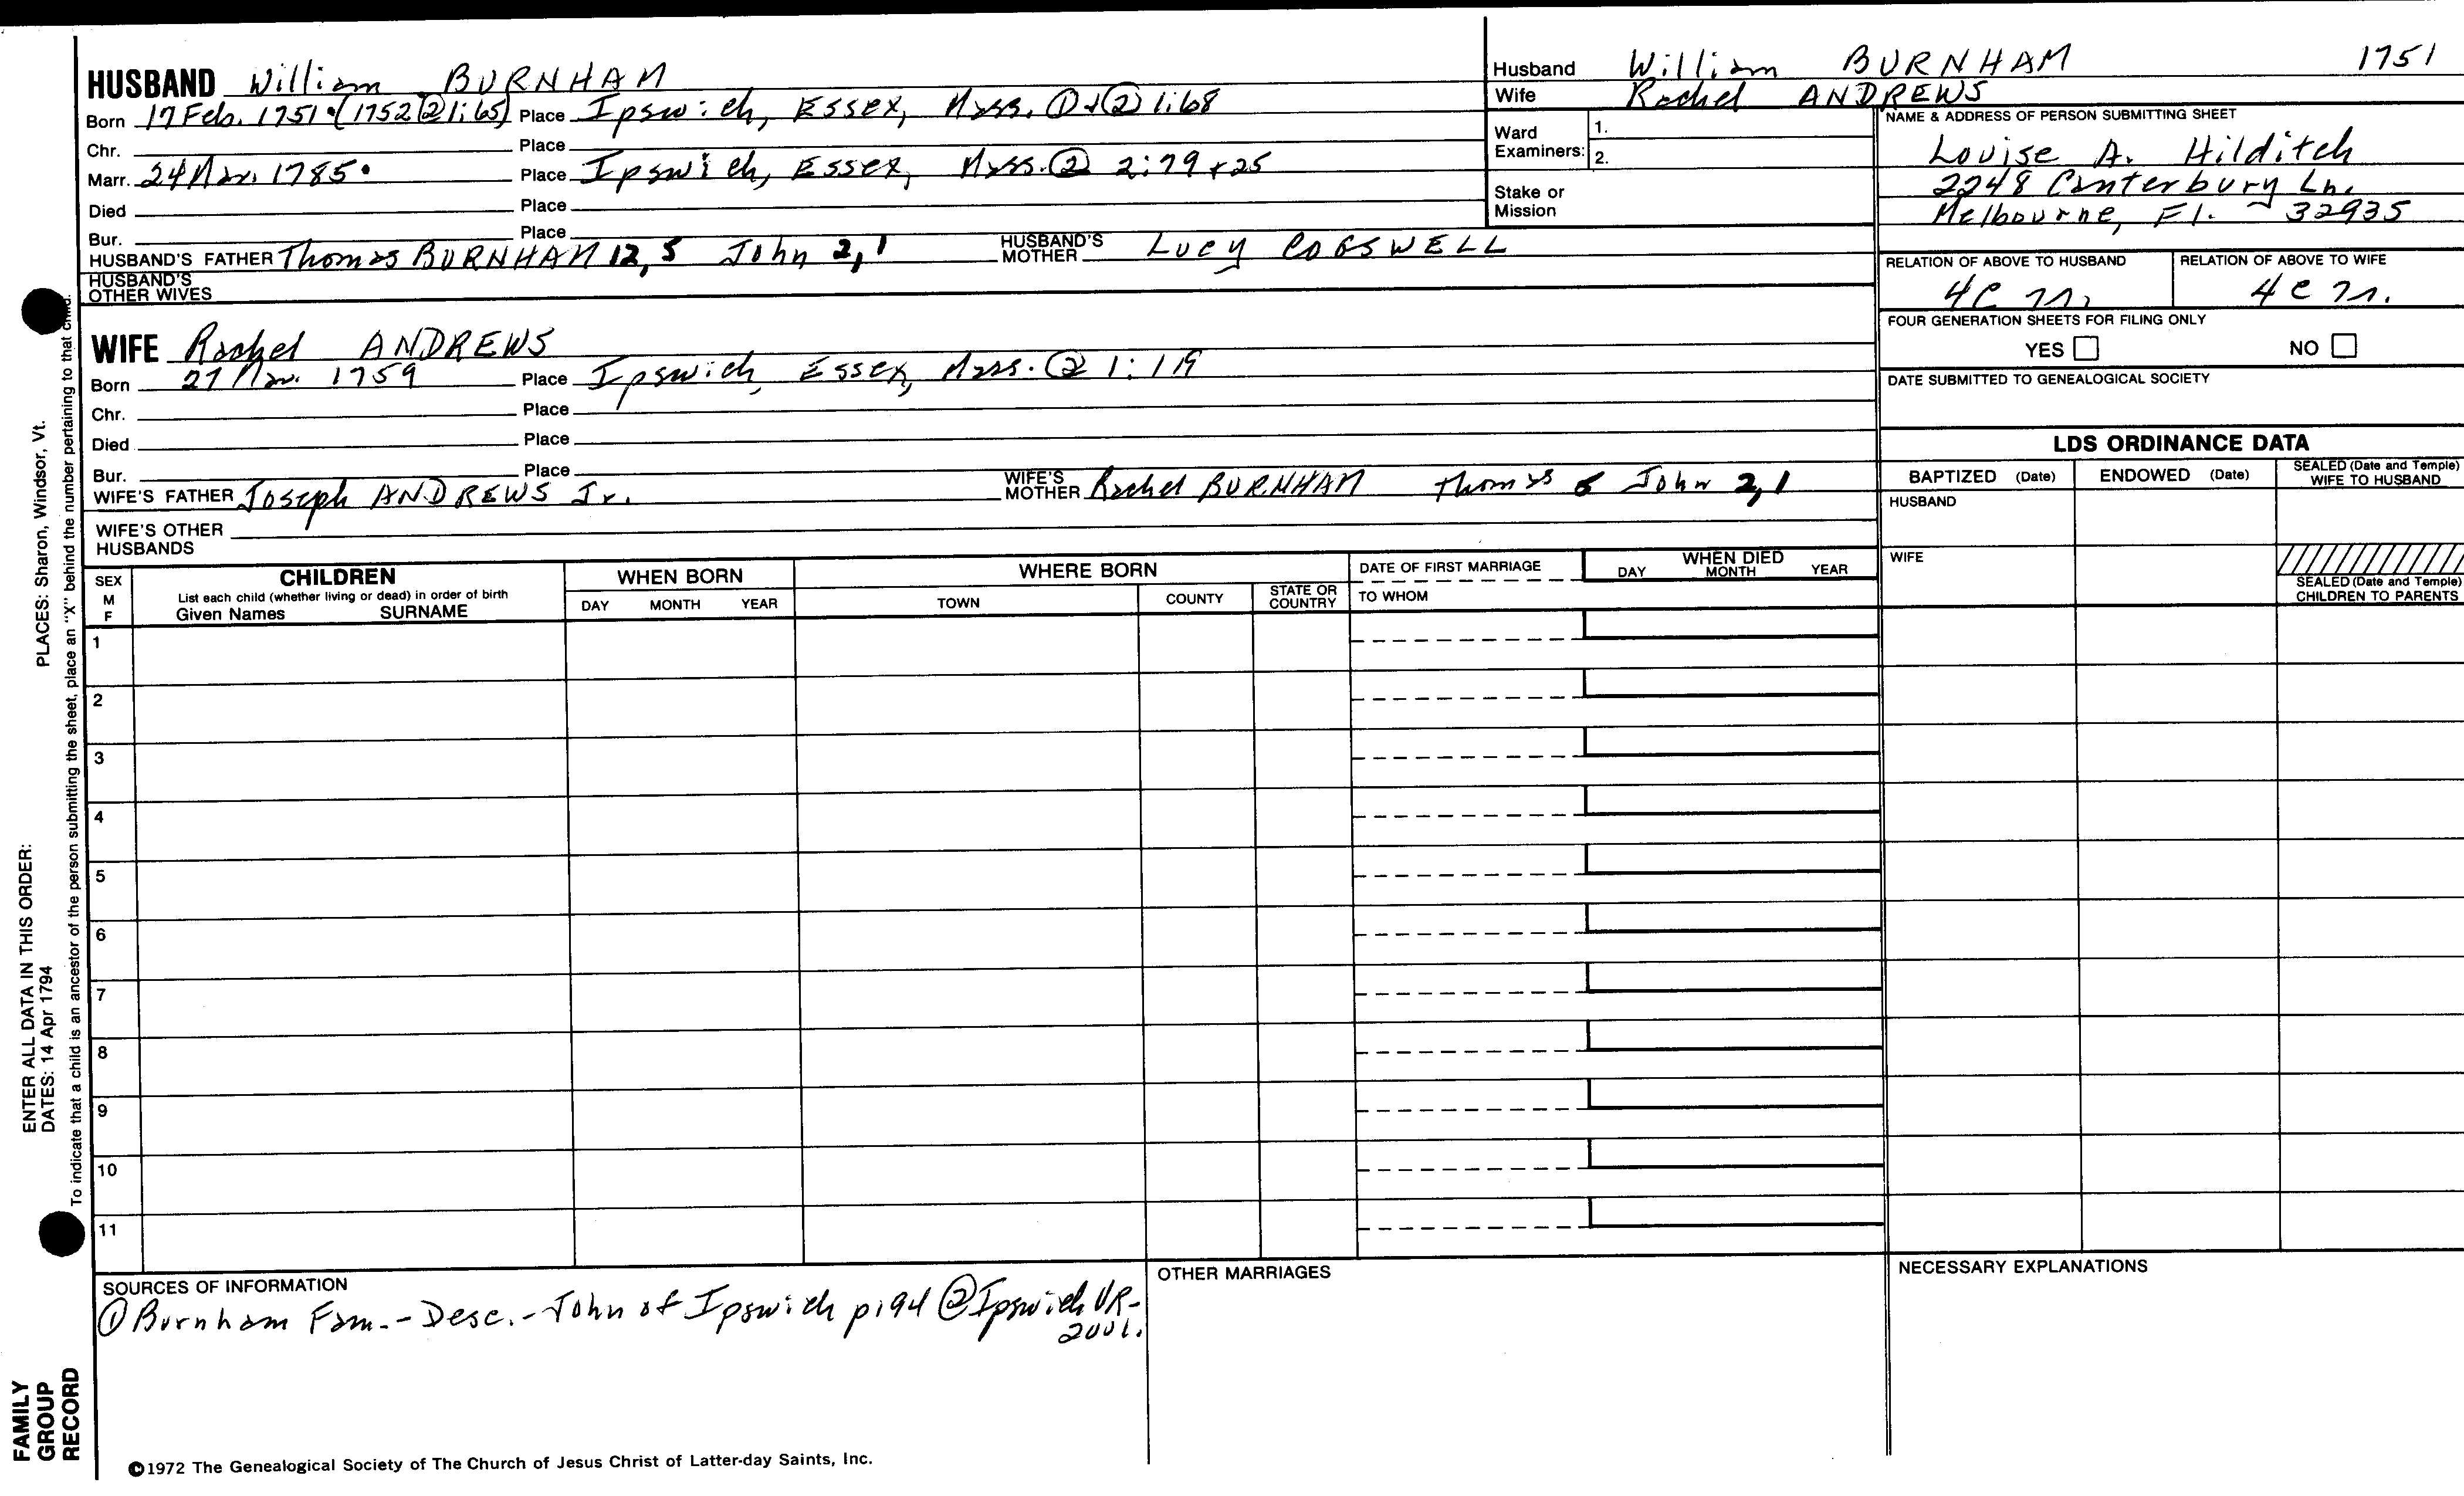 HUSBAND William BURNHAM
Born 17 Feb. 1751 (1752 ② 1:65) Place Ipswich, Essex, Mass. ① + ② 1:68
Chr. Place
Marr. 24 Mar. 1785 Place Ipswich, Essex, Mass. ② 2:79 + 25
Died Place
Bur. Place
HUSBAND'S FATHER Thomas BURNHAM 12, 5 John 2, 1 HUSBAND'S MOTHER Lucy COGSWELL
HUSBAND'S OTHER WIVES
WIFE Rachel ANDREWS
Born 27 Mar. 1759 Place Ipswich, Essex, Mass. ② 1:19
Chr. Place
Died Place
Bur. Place
WIFE'S FATHER Joseph ANDREWS Jr. WIFE'S MOTHER Rachel BURNHAM Thomas 5 John 2, 1
WIFE'S OTHER HUSBANDS
Husband William BURNHAM 1751
Wife Rachel ANDREWS
Ward Examiners: 1.
2.
Stake or Mission
NAME & ADDRESS OF PERSON SUBMITTING SHEET
Louise A. Hilditch
2248 Canterbury Ln.
Melbourne, Fl. 32935
RELATION OF ABOVE TO HUSBAND RELATION OF ABOVE TO WIFE
4C 7r. 4C 7r.
FOUR GENERATION SHEETS FOR FILING ONLY
YES NO
DATE SUBMITTED TO GENEALOGICAL SOCIETY
LDS ORDINANCE DATA
BAPTIZED (Date) ENDOWED (Date) SEALED (Date and Temple) WIFE TO HUSBAND
HUSBAND
WIFE
SEALED (Date and Temple)
CHILDREN TO PARENTS
SEX M F
CHILDREN
List each child (whether living or dead) in order of birth
Given Names SURNAME
WHEN BORN
DAY MONTH YEAR
WHERE BORN
TOWN COUNTY STATE OR COUNTRY
DATE OF FIRST MARRIAGE
TO WHOM
WHEN DIED
DAY MONTH YEAR
1
2
3
4
5
6
7
8
9
10
11
SOURCES OF INFORMATION
① Burnham Fam. - Desc. - John of Ipswich p194 ② Ipswich VR-
2001.
OTHER MARRIAGES
NECESSARY EXPLANATIONS
©1972 The Genealogical Society of The Church of Jesus Christ of Latter-day Saints, Inc.
FAMILY
GROUP
RECORD
ENTER ALL DATA IN THIS ORDER:
DATES: 14 Apr 1794 PLACES: Sharon, Windsor, Vt.
To indicate that a child is an ancestor of the person submitting the sheet, place an "X" behind the number pertaining to that child.